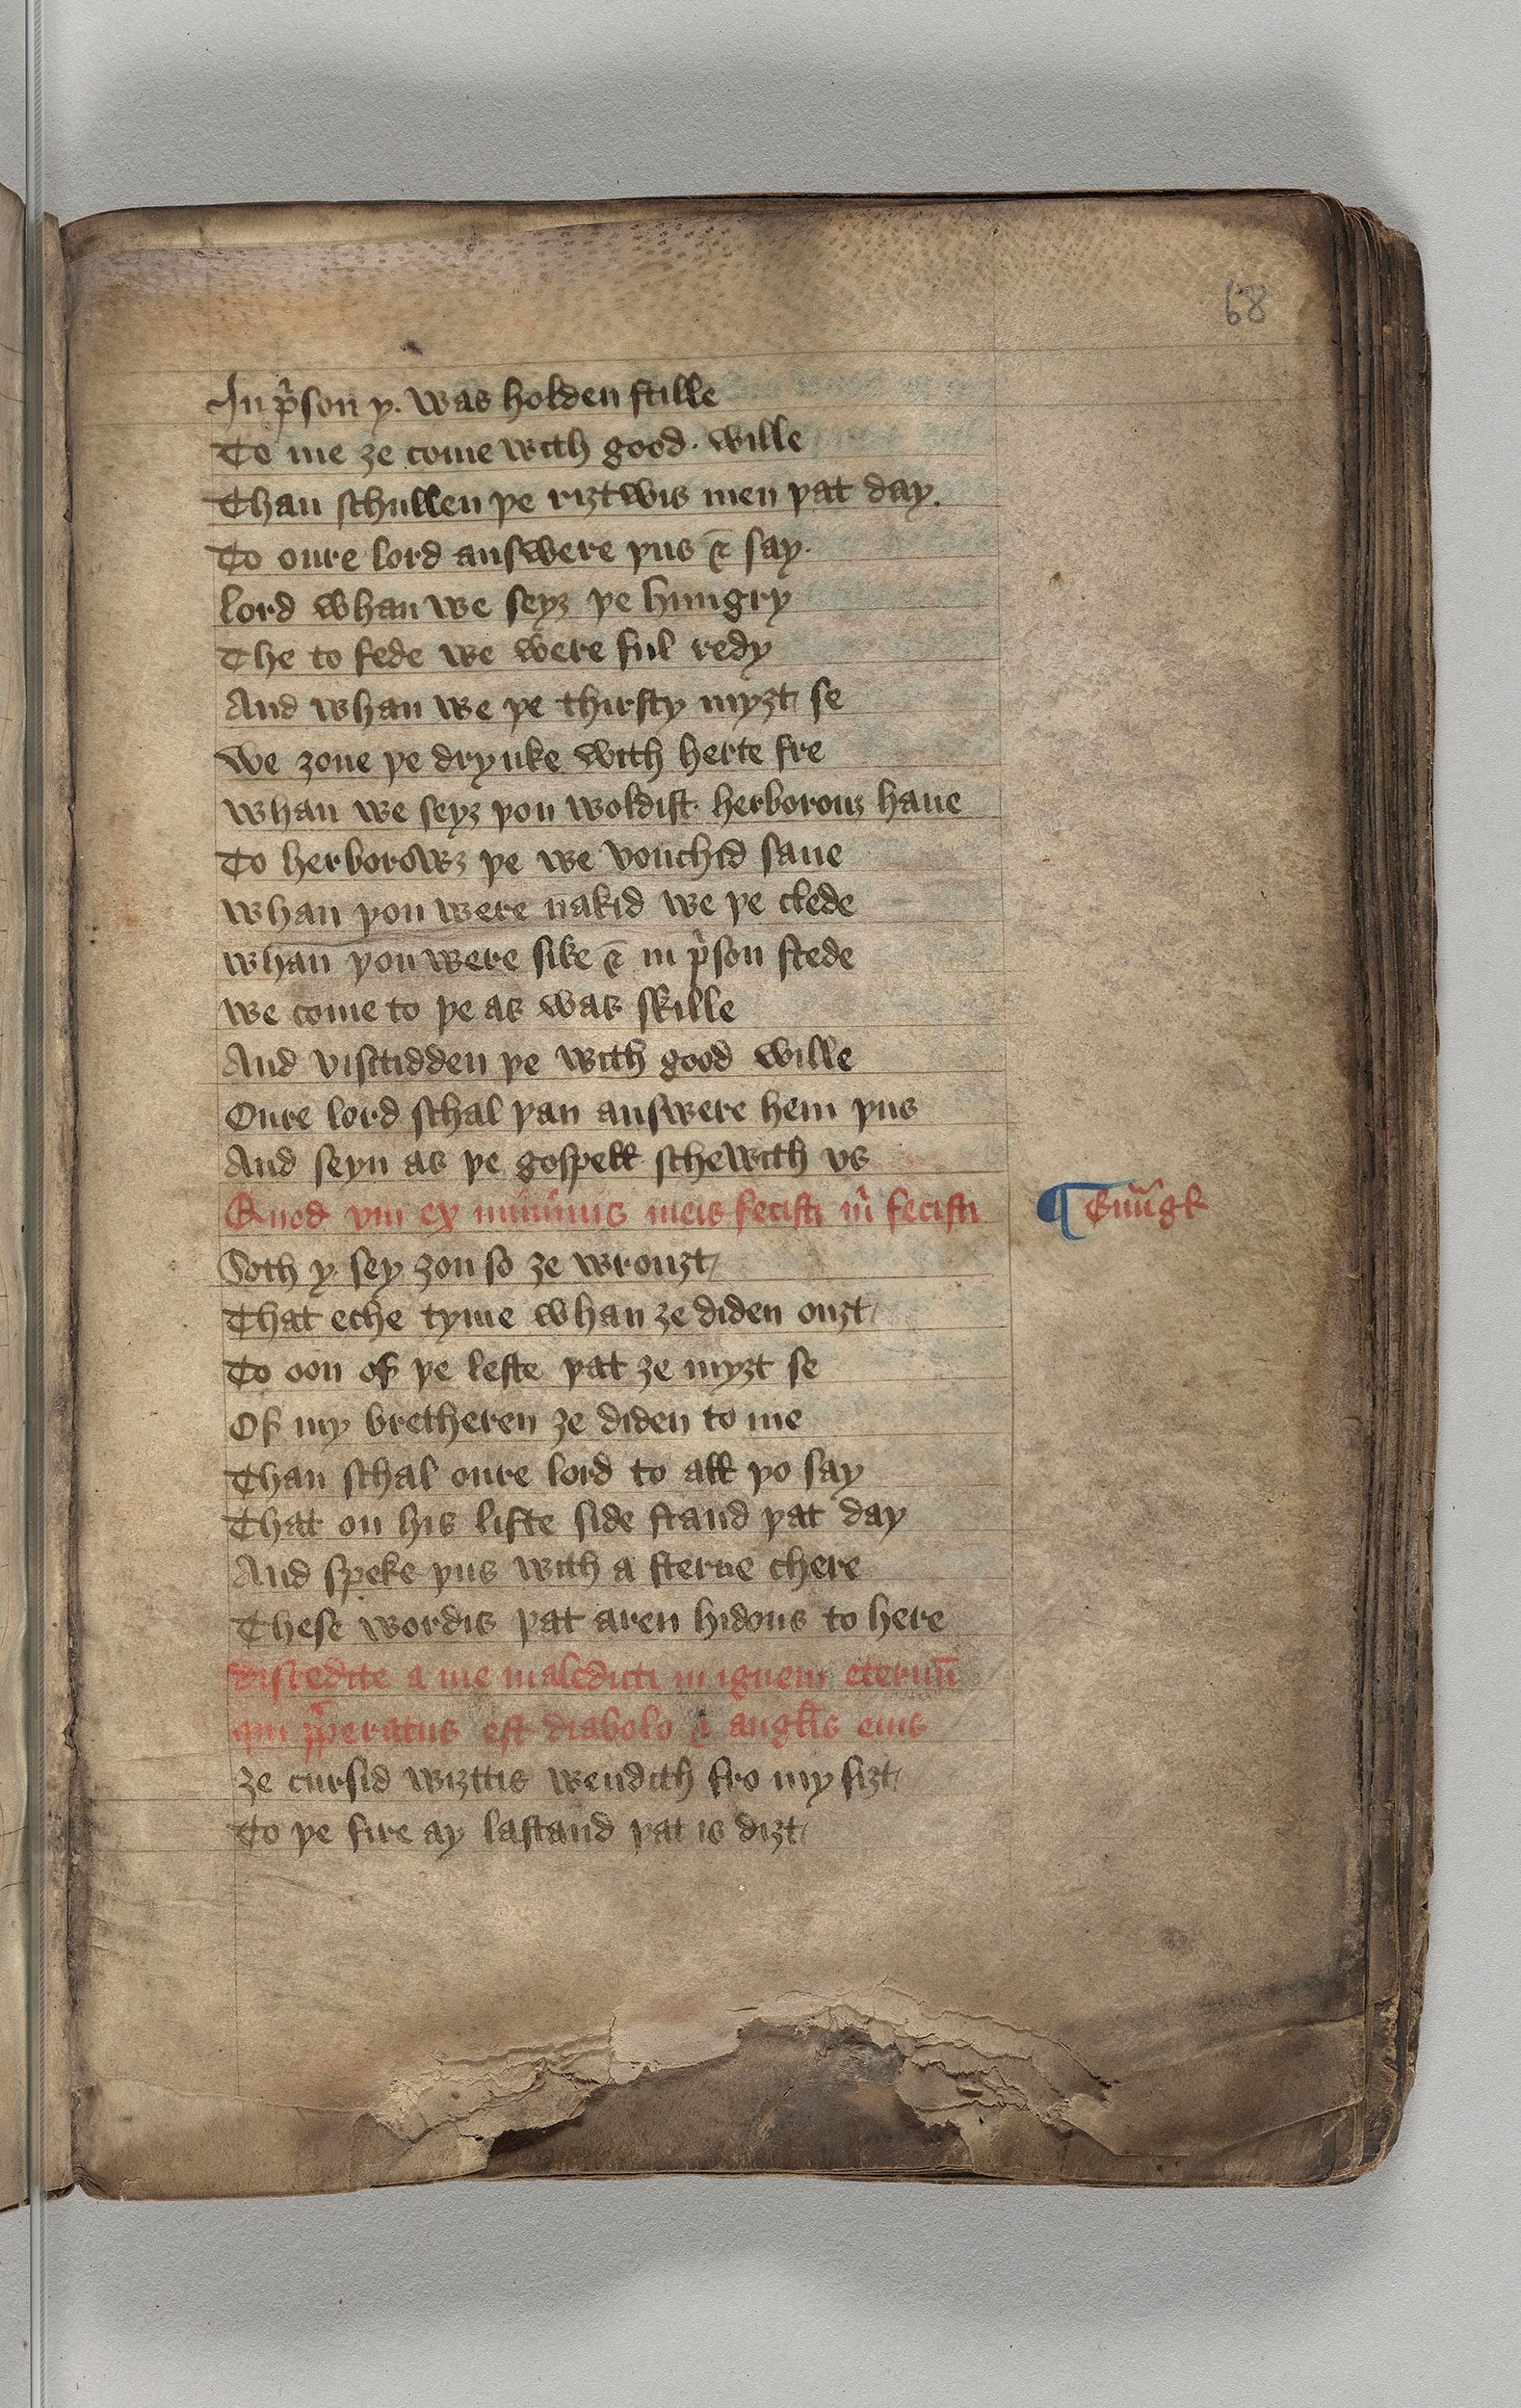 68
In pͥson y. was holden stille
To me ȝe come with good. wille
Than schullen þe riȝtwis men þat day.
To oure lord answere þus ⁊ say.
lord whan we seyȝ þe hungry
The to fede we were ful redy
And whan we þe thirsty myȝt se
we ȝoue þe drynke with herte fre
whan we seyȝ þou woldist herborouȝ haue
To herborowȝ þe we vouchid saue
whan þou were nakid we þe clede
whan þou were sike ⁊ in pͥson stede
we come to þe as was skille
And visitidden þe with good wille
Oure lord schal þan answere hem þus
And seyn as þe gospell schewith vs
Quod vni ex minimis meis fecisti m̉ fecisti
¶ Euu̅gẜ
Soth y. sey ȝou so ȝe wrouȝt
That eche tyme whan ȝe diden ouȝt
To oon of þe leste þat ȝe myȝt se
Of my bretheren ȝe diden to me
Than schal oure lord to all þo say
That on his lifte side stand þat day
And speke þus with a sterne chere
These wordis þat aren hidous to here
discedite a me maledicti in ignem eternu̅
qui p̅peratus est diabolo ⁊ angłis eius
ȝe cursid wiȝttis wendith fro my siȝt
To þe fire ay lastand þat is diȝt